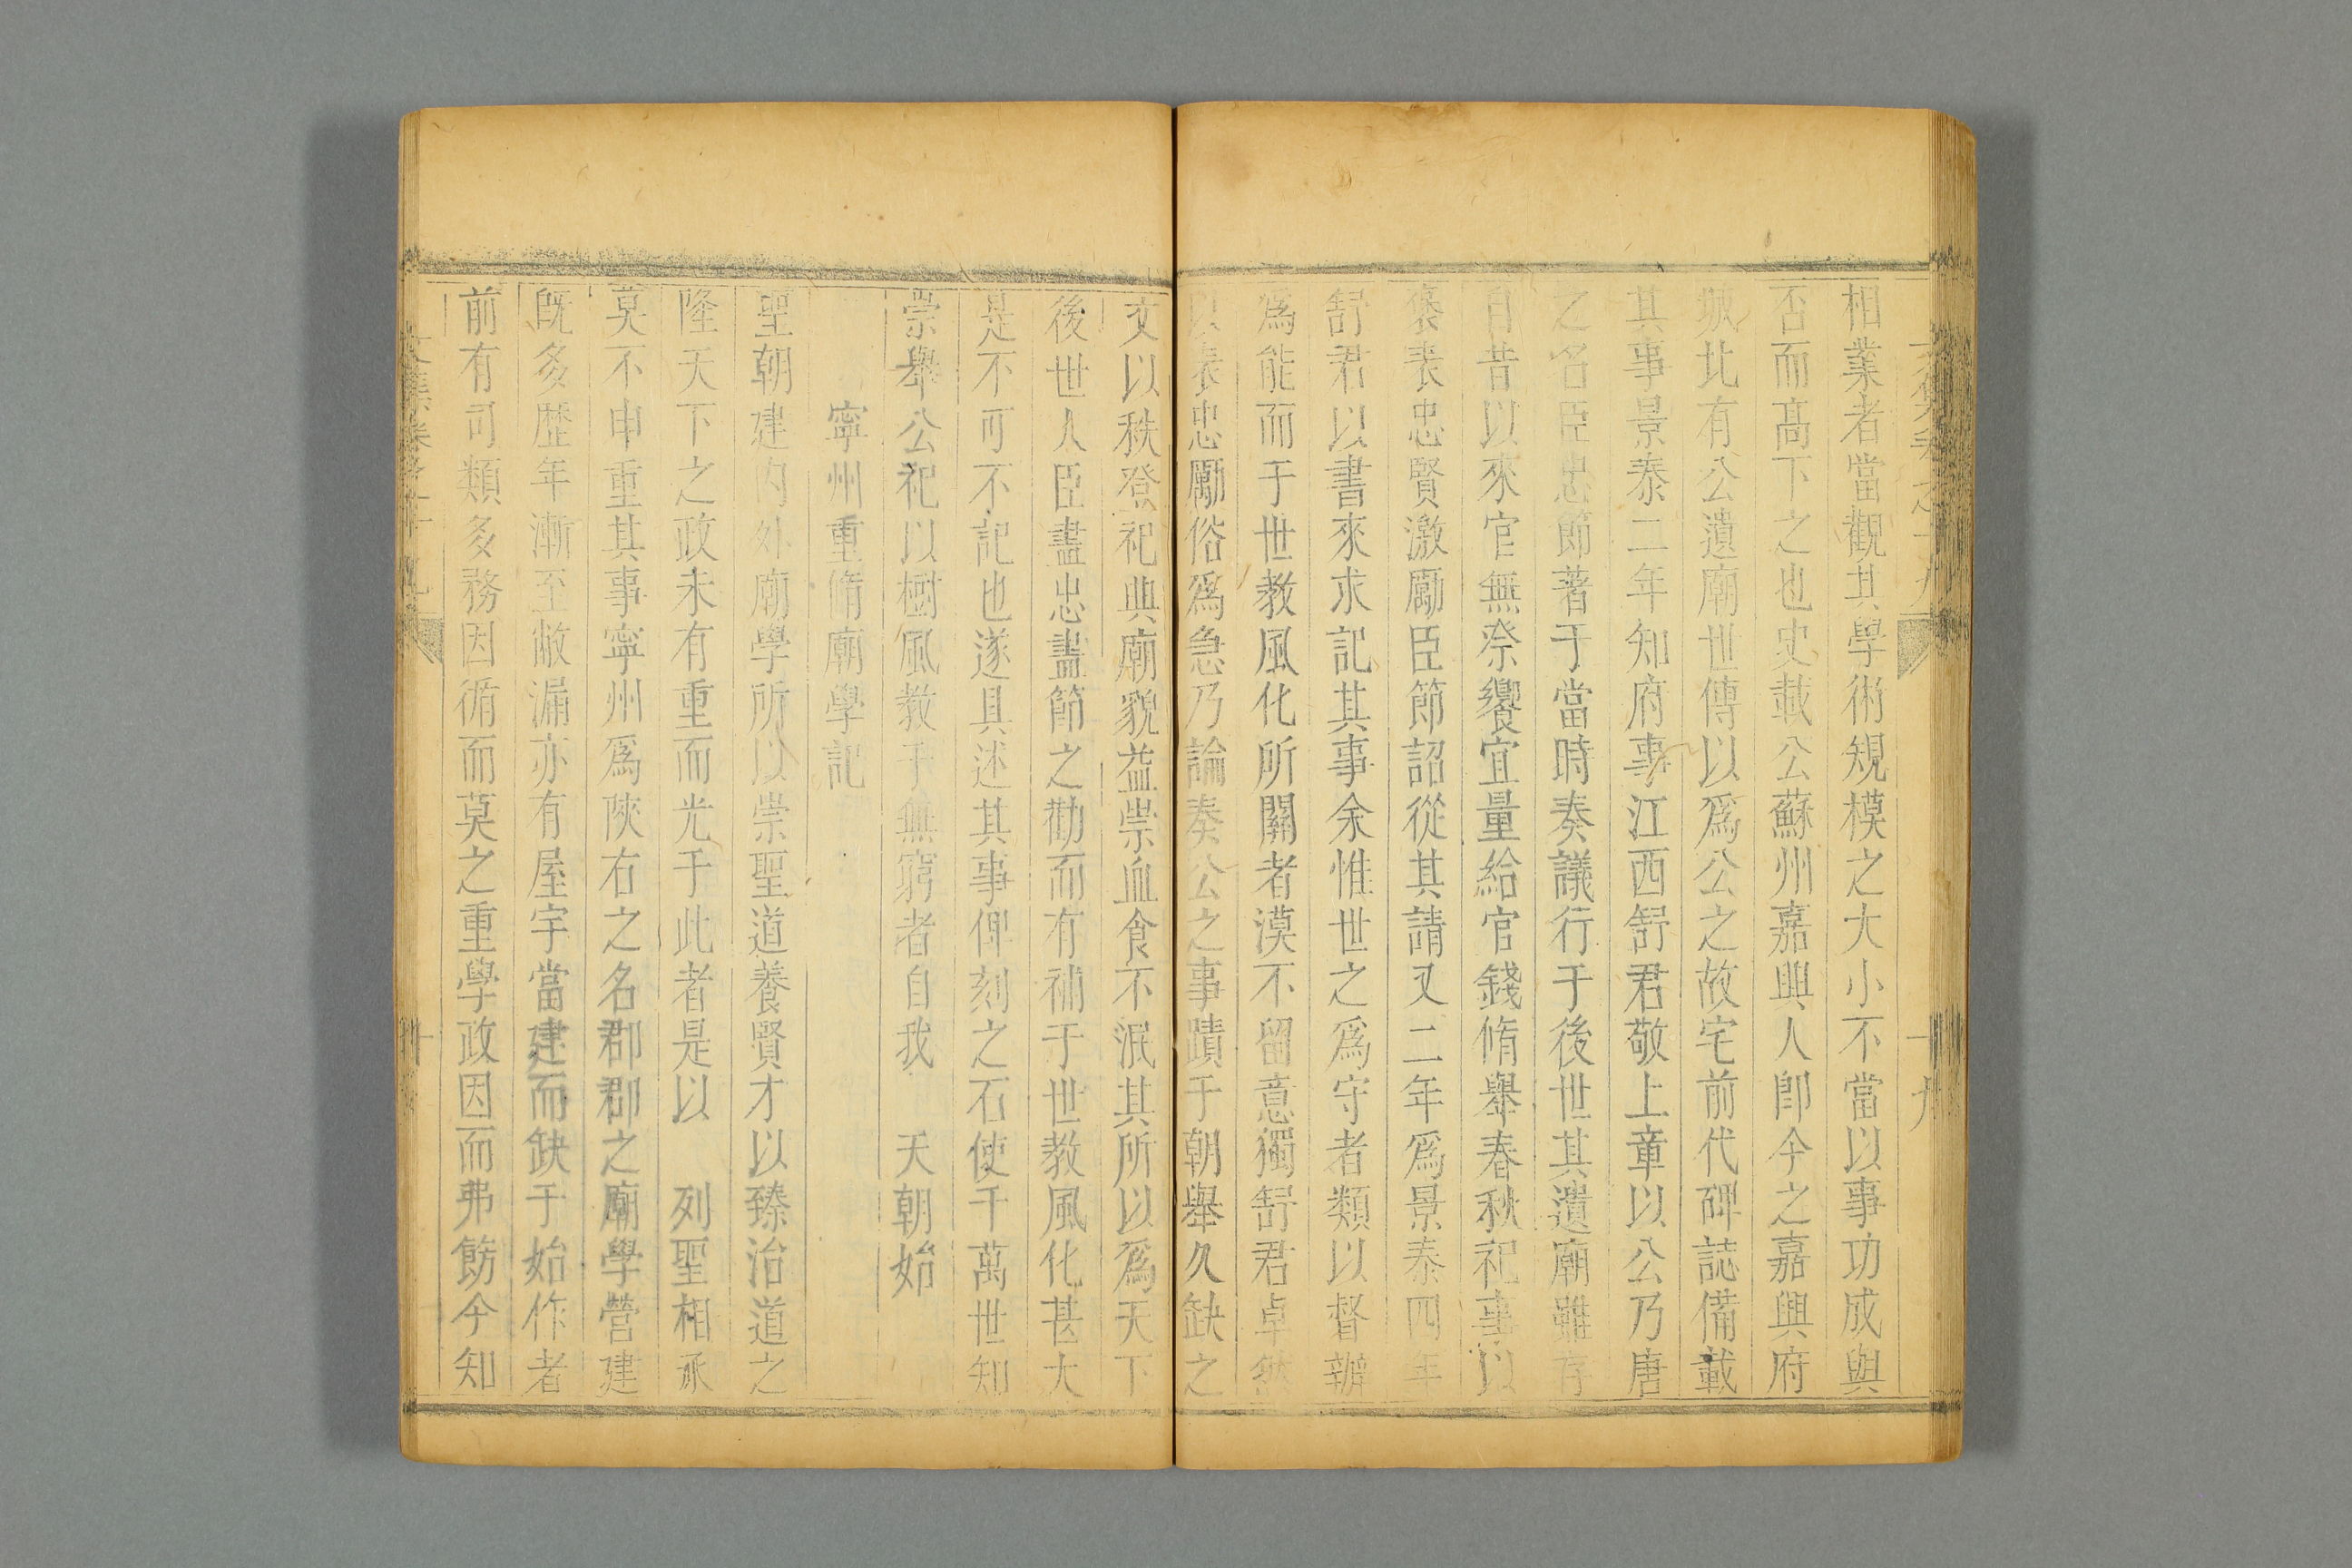 相業者當觀其學術規模之大小不當以事功成與
否而高下之也史載公蘇州嘉興人卽今之嘉興府
城北有公遺廟世傳以爲公之故宅前代碑誌備載
其事景泰二年知府事江西舒君敬上章以公乃唐
之名臣忠節著于當時奏議行于後世其遺廟雖存
自昔以來官無祭饗宜量給官錢脩舉春秋祀事以
褒表忠賢激勵臣節詔從其請又二年爲景泰四年
舒君以書來求記其事余惟世之爲守者類以督辦
爲能而于世教風化所關者漠不留意獨舒君卓然
以表忠勵俗爲急乃論奏公之事蹟于朝舉久缺之
文以秩登祀典廟貌益崇血食不泯其所以爲天下
後世人臣盡忠盡節之勸而有補于世教風化甚大
是不可不記也遂具述其事俾刻之石使千萬世知
崇舉公祀以樹風教于無窮者自我　天朝始
寧州重脩廟學記
聖朝建内外廟學所以崇聖道養賢才以臻治道之
隆天下之政未有重而光于此者是以　列聖相承
莫不申重其事寧州爲陜右之名郡郡之廟學營建
旣多歷年漸至敝漏亦有屋宇當建而缺于始作者
前有司類多務因循而莫之重學政因而弗飭今知